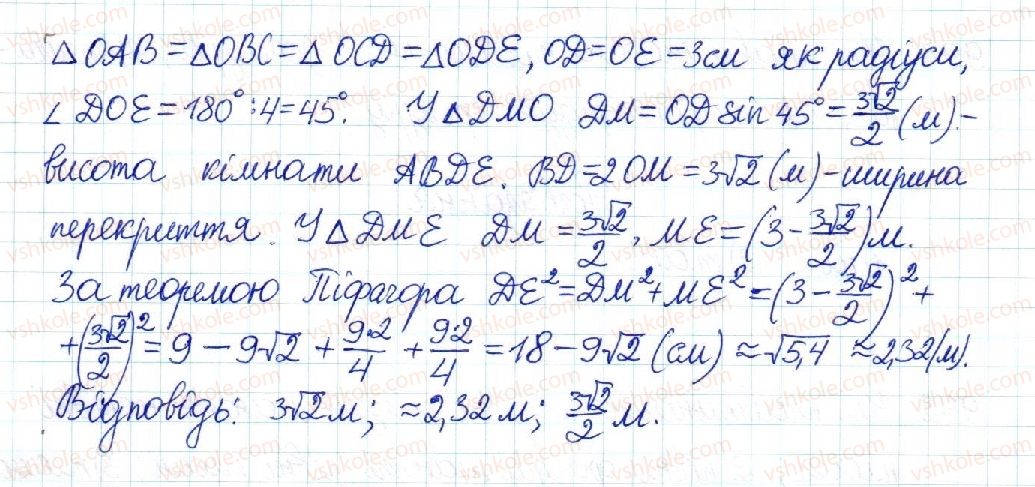 △OAB=△OBC=△OCD=△ODE, OD=OE=3см як радіуси,
∠DOE=180°:4=45°. У △DMO DM=OD sin 45°=3√2/2 (м)-
висота кімнати ABDE. BD=2OM=3√2 (м)-ширина
перекриття. У △DME DM=3√2/2, ME=(3-3√2/2)м.
За теоремою Піфагора DE²=DM²+ME²=(3-3√2/2)²+
+(3√2/2)²=9-9√2+9·2/4+9·2/4=18-9√2 (см)≈√5,4 ≈2,32(м).
Відповідь: 3√2м; ≈2,32м; 3√2/2 м.